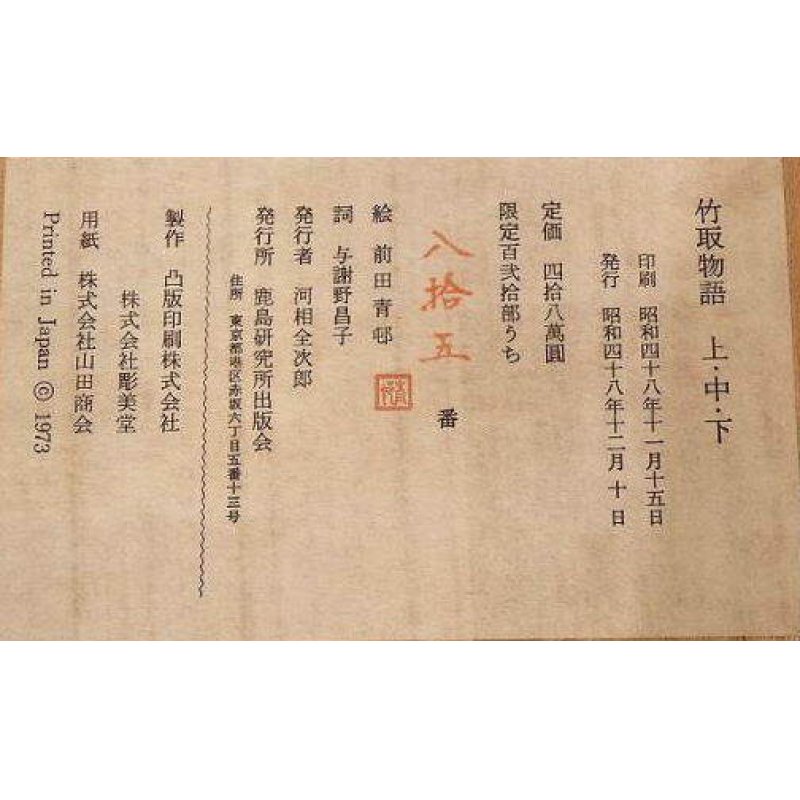 竹取物語 上・中・下
印刷 昭和四十八年十一月十五日
発行 昭和四十八年十二月十日
定価 四拾八萬圓
限定百弐拾部うち
八拾五番
絵 前田青邨
詞 与謝野昌子
発行者 河相全次郎
発行所 鹿島研究所出版会
住所 東京都港区赤坂六丁目五番十三号
製作 凸版印刷株式会社
株式会社彫美堂
用紙 株式会社山田商会
Printed in Japan © 1973